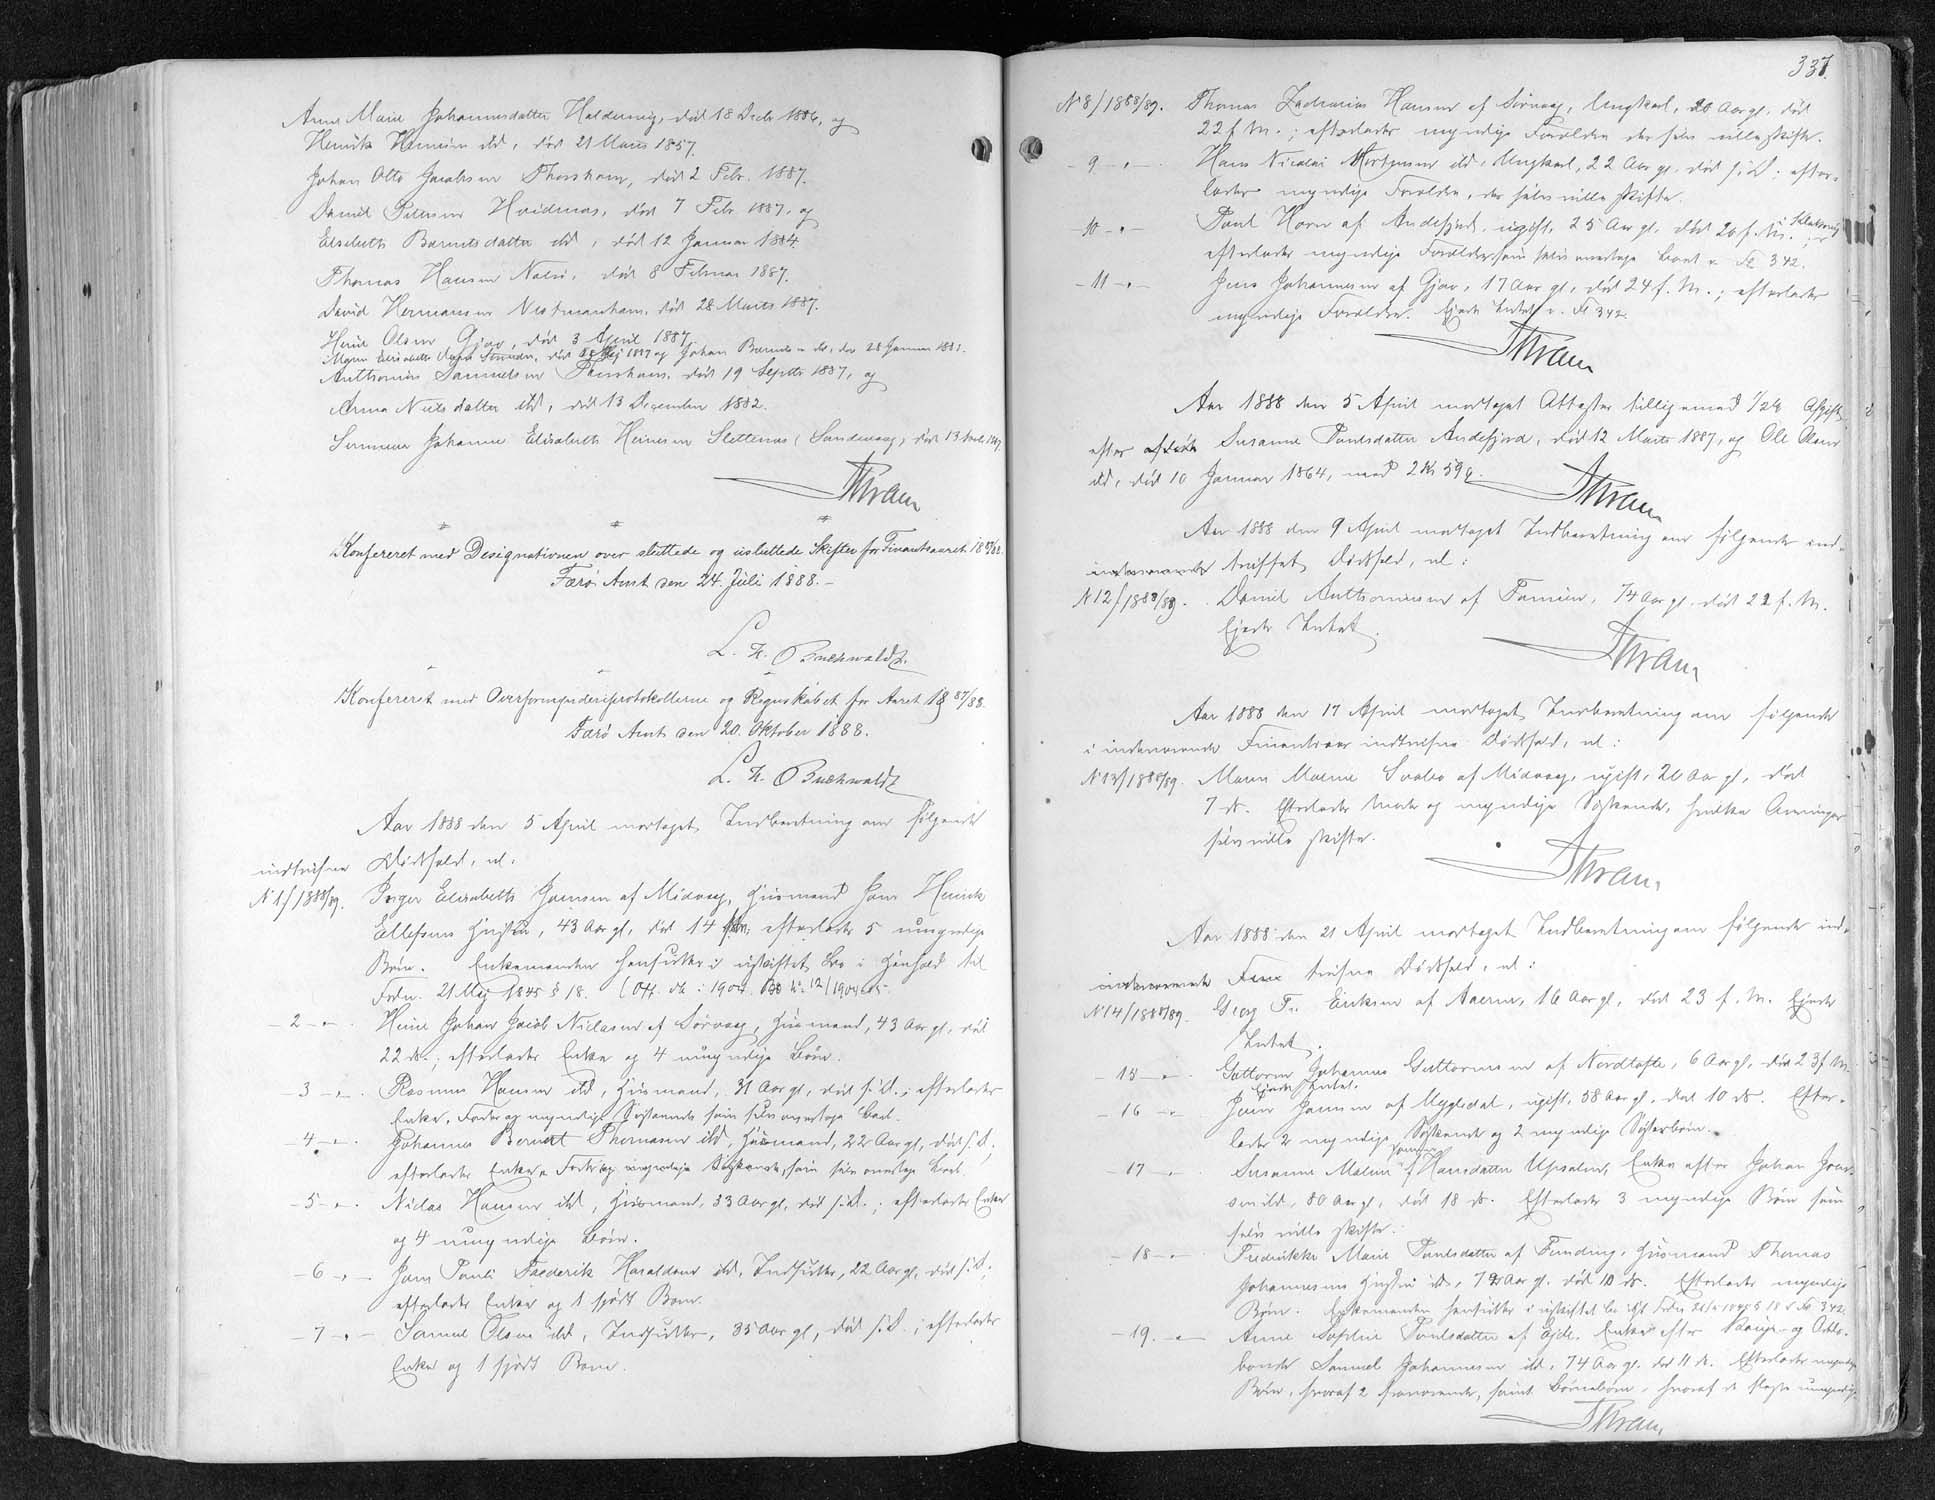 Anne Marie Johannesdatter Haldersvig, død 18 Decbr 1886, og
Henrik Heinesen ibd, død 21 Marts 1857.
Johan Otto Jacobsen Thorshavn, død 2 Febr. 1887.
Daniel Petersen Hvidenæs, død 7 Febr. 1887, og
Elsebeth Barentsdatter ibd, død 12 Januar 1884.
Thomas Hansen Nolsø, død 8 Februar 1887.
David Hermansen Vestmanhavn, død 28 Marts 1887.
Heine Olsen Gjov, død 3 April 1887.
død Mej 1887 og Johan ibd, død 28 Januar
Anthonius Samuelsen Thorshavn, død 19 Septbr 1887, og
Anna Nielsdatter ibd, død 13 December 1882.
Johanne Elisabeth Heinesen Slettenæs (Sandevaag) død 13
Thran
Konfereret med Designationen over sluttede og usluttede Skifter for Finantsaaret 1887/88.
Færø Amt den 24. Juli 1888.-
L. Buchwaldt.
Konfereret med Overformynderiprotokollerne og Regnskabet for Aaret 1887/88.
Færø Amt den 20. Oktober 1888.
L. Buchwaldt
Aar 1888 den 5 April modtaget Indberetning om følgende
indtrufne Dødsfald, nl.
N 1/1888/89. Inger Elisabeth Joensen af Midvaag, Huusmand Hans Henrik
Ellefsens Hustru, 43 Aar gl, død 14 efterlader 5 umyndige
Børn. Enkemanden hensidder i uskiftet Bo i Henhold til
Frdn. 21 Mej 1845 § 18. 12/1904-05.
- 2 - " - Heine Johan Jacob Niclasen af Sørvaag, Huusmand, 43 Aar gl, død
22 ds.; efterlader Enke og 4 umyndige Børn.
- 3 - " - Rasmus Hansen ibd, Huusmand, 31 Aar gl, død s.D.; efterlader
Enke, Fader og myndige Søskende som selv overtage Boet.
- 4 - " - Johannes Berent Thomasen ibd, Huusmand, 22 Aar gl, død s.D.;
efterlader Enke, Fader og myndige Søskende, som selv overtage Boet.
- 5 - " - Niclas Hansen ibd, Huusmand, 33 Aar gl, død s.D.; efterlader Enke
og 4 umyndige Børn.
- 6 - " - Hans Pauli Frederik Haraldsen ibd, Indsidder, 22 Aar gl, død s.D.;
efterlader Enke og 1 spædt Barn.
- 7 - " - Samuel Olsen ibd, Indsidder, 35 Aar gl, død s.D.; efterlader
Enke og 1 spædt Barn.
337.
N 8/1888/89. Thomas Zacharias Hansen af Sørvaag, Ungkarl, 20 Aar gl, død
22 f. M.; efterlader myndige Forældre der selv ville skifte.
- 9 - " - Hans Nicolai Mortensen ibd, Ungkarl, 22 Aar gl. død s.D.; efter-
lader myndige Forældre, der selv ville skifte.
- 10 - " - Poul Horn af Andefjord, ugift, 25 Aar gl, død 26 f. M. i Klaksvig;
efterlader myndige Forældre, som selv overtage Boet v. Fol 342.
- 11 - " - Jens Johannesen af Gjov, 17 Aar gl, død 24 f. M.; efterlader
myndige Forældre. Ejede Intet v. Fol 342.
Thran
Aar 1888 den 5 April modtaget Attester tilligemed 1/2% Afgift
efter afdøde Susanne Poulsdatter Andefjord, død 12 Marts 1887, og Ole Olsen
ibd, død 10 Januar 1864, med 2 Kr 59 ø.
Thran
Aar 1888 den 9 April modtaget Indberetning om følgende ind-
indeværende truffet Dødsfald, nl:
N 12/1888/89. Daniel Anthoniussen af Famien, 74 Aar gl. død 22 f. M.
Ejede Intet.
Thran
Aar 1888 den 17 April modtaget Indberetning om følgende
i indeværende Finantsaar indtrufne Dødsfald, nl:
N 13/1888/89. Maren Malene Svabo af Midvaag, ugift, 20 Aar gl, død
7 ds. Efterlader Moder og myndige Søskende, hvilke Arvinger
selv ville skifte.
Thran
Aar 1888 den 21 April modtaget Indberetning om følgende ind-
indeværende trufne Dødsfald, nl:
N 14/1888/89. Georg Fr. Eriksen af Aaerne, 16 Aar gl, død 23 f. M. Ejede
Intet.
- 15 - " - Guttorm Johannes Guttormsen af Nordtofte, 6 Aar gl, død 23 f. M.
Ejede Intet.
- 16 - " - Joen Joensen af Mygledal, ugift, 58 Aar gl, død 10 ds. Efter-
lader 2 myndige Søskende og 2 myndige Søsterbørn.
- 17 - " - Susanne Malene Hansdatter Upsalen, Enke efter Johan Joen-
sen ibd, 80 Aar gl, død 18 ds. Efterlader 3 myndige Børn som
selv ville skifte.
- 18 - " - Fredrikke Marie Poulsdatter af Funding, Huusmand Thomas
Johannesens Hustru ibd, 72 Aar gl. død 10 ds. Efterlader myndige
Børn. Enkemanden hensidder i uskiftet Bo Frdn 21/5 1845 § 18 v Fol 342
- 19. - " - Anne Sophie Poulsdatter af Ejde, Enke efter Konge- og Odels-
bonde Samuel Johannesen ibd, 74 Aar gl. død 11 ds. Efterlader myndige
Børn, hvoraf 2 fraværende, samt Børnebørn, hvoraf de fleste umyndige.
Thran